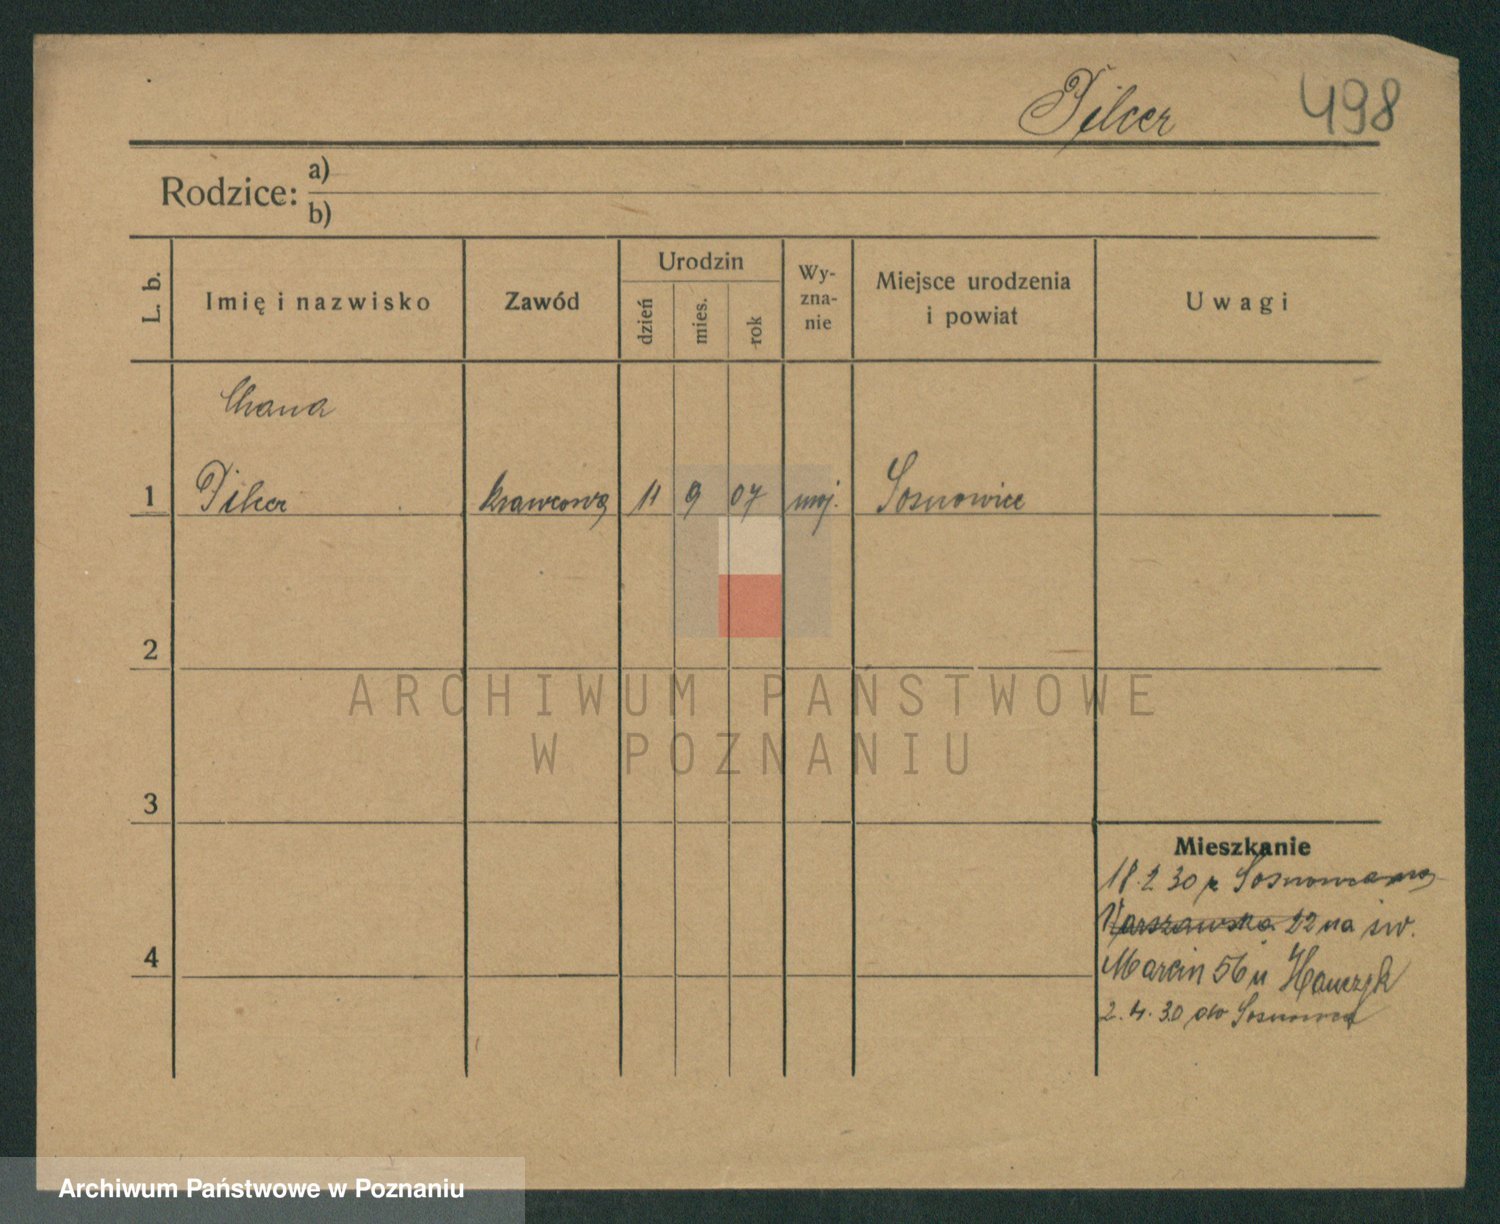 Pilcer 498
Rodzice: a)
b)
L. b.
Imię i nazwisko
Zawód
Urodzin
dzień
mies.
rok
Wy-
zna-
nie
Miejsce urodzenia
i powiat
Uwagi
Chana
1 Pilcer krawcowa 11 9 07 moj. Sosnowice
2
3
4
Mieszkanie
18.2 30 z Sosnowca
Warszawska 22 na św.
Marcin 56 u Hanczyk
2. 4. 30 do Sosnowca
ARCHIWUM PAŃSTWOWE
W POZNANIU
Archiwum Państwowe w Poznaniu